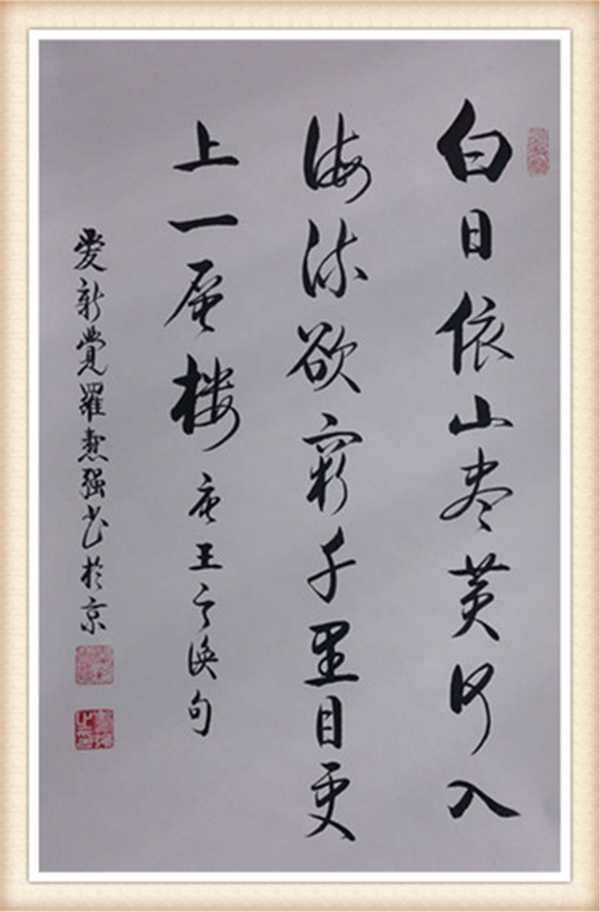 白日依山尽黄河入
海流欲穷千里目更
上一层楼 唐王之涣句
爱新觉罗焘强书于京